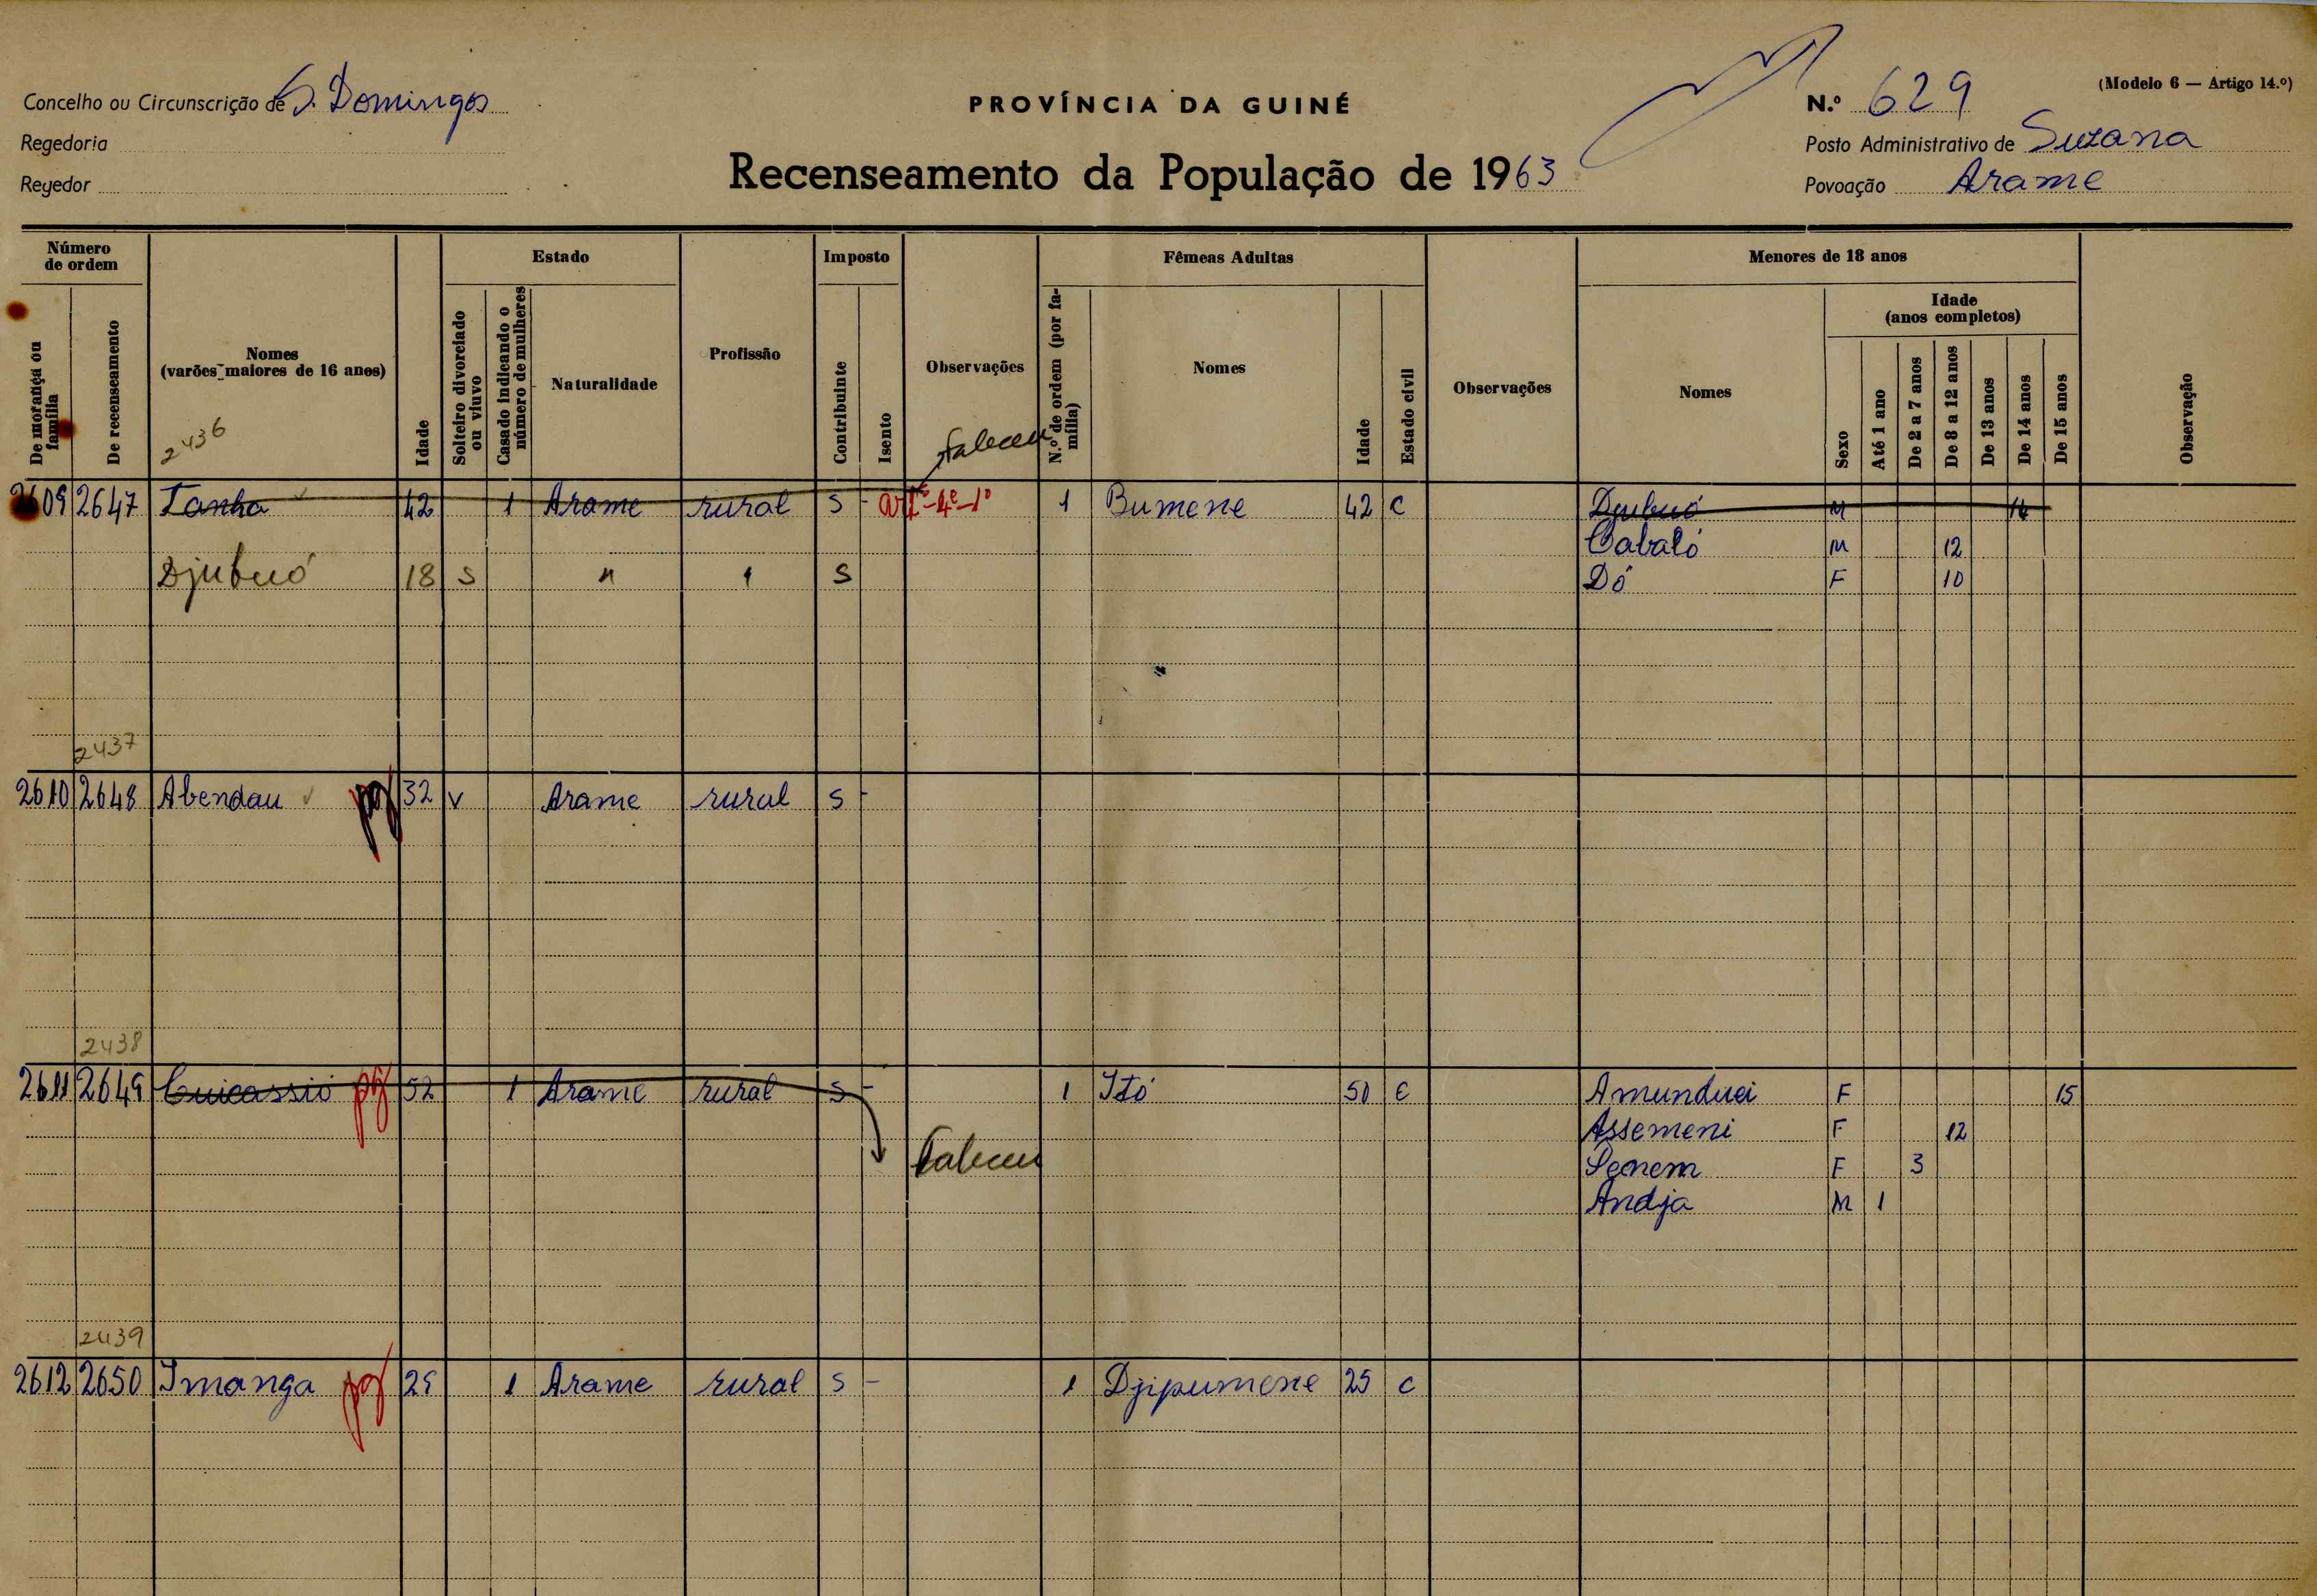 Concelho ou Circunscrição de S. Domingos
Regedoria
Regedor
PROVÍNCIA DA GUINÉ
Recenseamento da População de 1963
(Modelo 6 — Artigo 14.º)
N.º 629
Posto Administrativo de Suzana
Povoação Arame
Número de ordem
De morança ou família
De recenseamento
Nomes (varões maiores de 16 anos)
Idade
Estado
Solteiro divorciado ou viuvo
Casado indicando o número de mulheres
Naturalidade
Profissão
Imposto
Contribuinte
Isento
Observações
Fêmeas Adultas
N.º de ordem (por família)
Nomes
Idade
Estado civil
Observações
Menores de 18 anos
Nomes
Sexo
Idade (anos completos)
Até 1 ano
De 2 a 7 anos
De 8 a 12 anos
De 13 anos
De 14 anos
De 15 anos
Observação
2436
Faleceu
2609 2647 Tanha 42 1 Arame rural S - artº-4º-1º 1 Bumene 42 C Djubuó M 14
Cabaló M 12
Djubuó 18 S " " S Dó F 10
2437
2610 2648 Abendau pg 32 V Arame rural S -
2438
2611 2649 Cuicassió pg 52 1 Arame rural S - 1 Itó 50 C Amunduei F 15
Assemeni F 12
Faleceu Senem F 3
Andja M 1
2439
2612 2650 Imanga pg 29 1 Arame rural S - 1 Djipumene 25 C